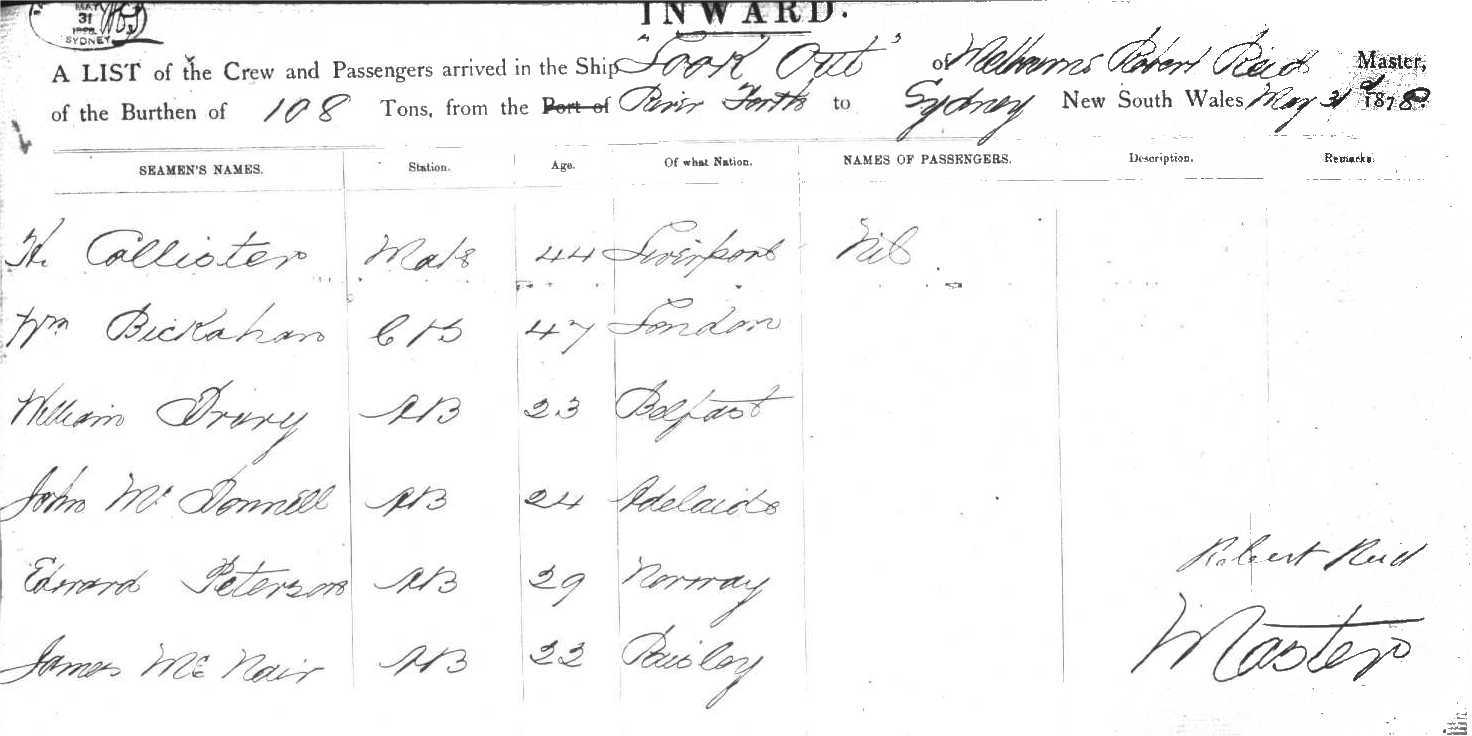 MAY
31
SYDNEY
INWARD.
A LIST of the Crew and Passengers arrived in the Ship "Look Out" of Melbourne Robert Reid Master,
of the Burthen of 108 Tons, from the Port of River Forth to Sydney New South Wales May 31 1878
SEAMEN'S NAMES. Station. Age. Of what Nation. NAMES OF PASSENGERS. Description. Remarks.
H. Collister Mate 44 Liverpool Nil
Wm Bickahan 47 London
William Drury AB 23 Belfast
John Mc Donnell AB 24 Adelaide
Edward Peterson AB 29 Norway
Robert Reid
James Mc Nair AB 22 Paisley
Master